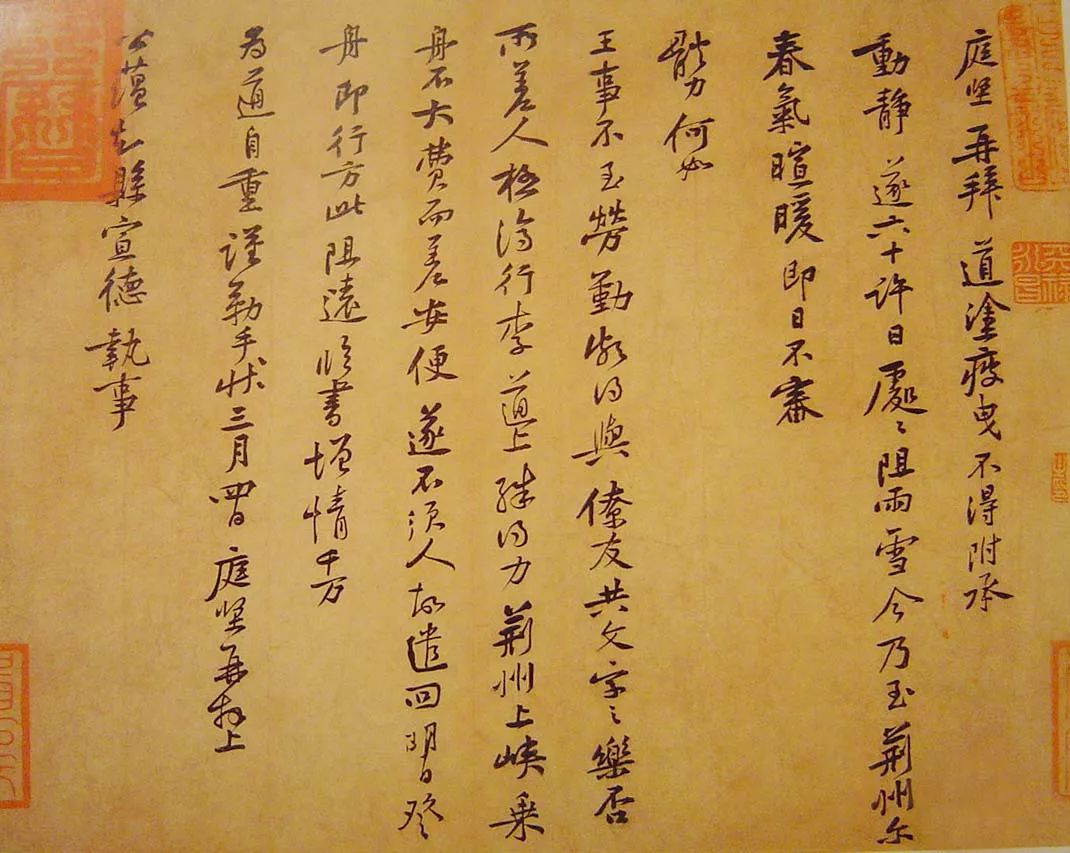 庭坚再拜道塗疲曳不得附承
動靜遂六十許日處〻阻雨雪今乃至荆州尔
春氣暄暖即日不審
體力何如
王事不至勞勤頗得與僚友共文字之樂否
所差人極濟行李上道殊得力荆州上峽乘
舟不大費而差安便遂不須人故遣回明日登
舟即行方此阻遠臨書增情千万
為道自重謹勒手狀三月四日庭坚再拜上
公蘊知縣宣德執事